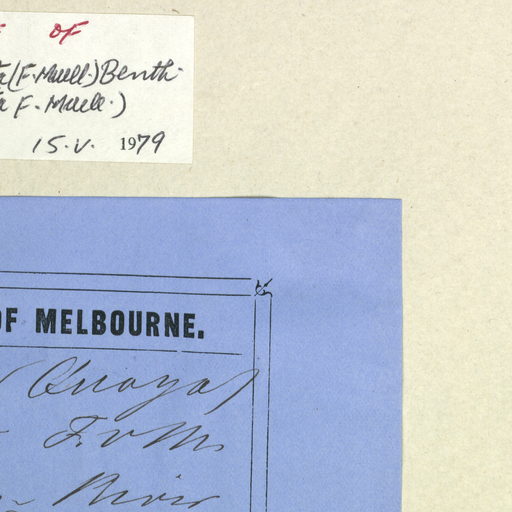 OF
(F. Muell.) Benth.
F. Muell.)
15.V. 1979
OF MELBOURNE.
F.v M.
River